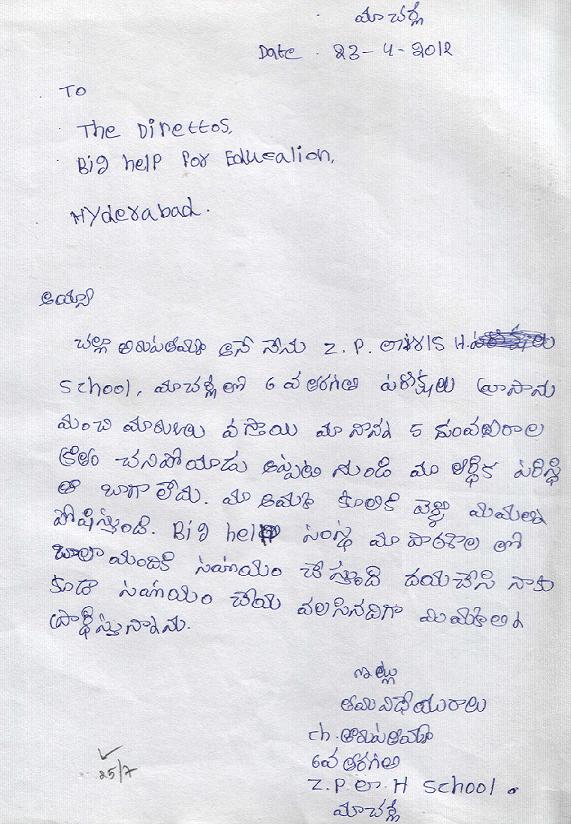 మాచర్ల
Date . 23-4-2012
To
The Direttos,
Big help For Education,
Hyderabad.
అయ్యా
చల్లా తిరుపతమ్మ అనే నేను Z.P. H.
School, మాచర్ల లో 6 వ తరగతి పరీక్షలు వ్రాసాను
మంచి మారుకులు వస్తాయి మా నాన్న 5 సంవత్సరాల
క్రితం చనిపోయాడు అప్పటి నుండి మా ఆర్థిక పరిస్థి
తి బాగా లేదు. మా అమ్మ కూలికి వెళ్లి మమ్మల్ని
పోషిస్తుంది. Big help సంస్థ మా పాఠశాల లో
చాలా మందికి సహాయం చేస్తూంది దయచేసి నాకు
కూడా సహాయం చేయ వలసినదిగా మిమ్మల్ని
ప్రార్థిస్తున్నాను.
ఇట్లు
తమ విధేయురాలు
ch. తిరుపతమ్మ
6వ తరగతి
Z.P. H School.
మాచర్ల
25/7